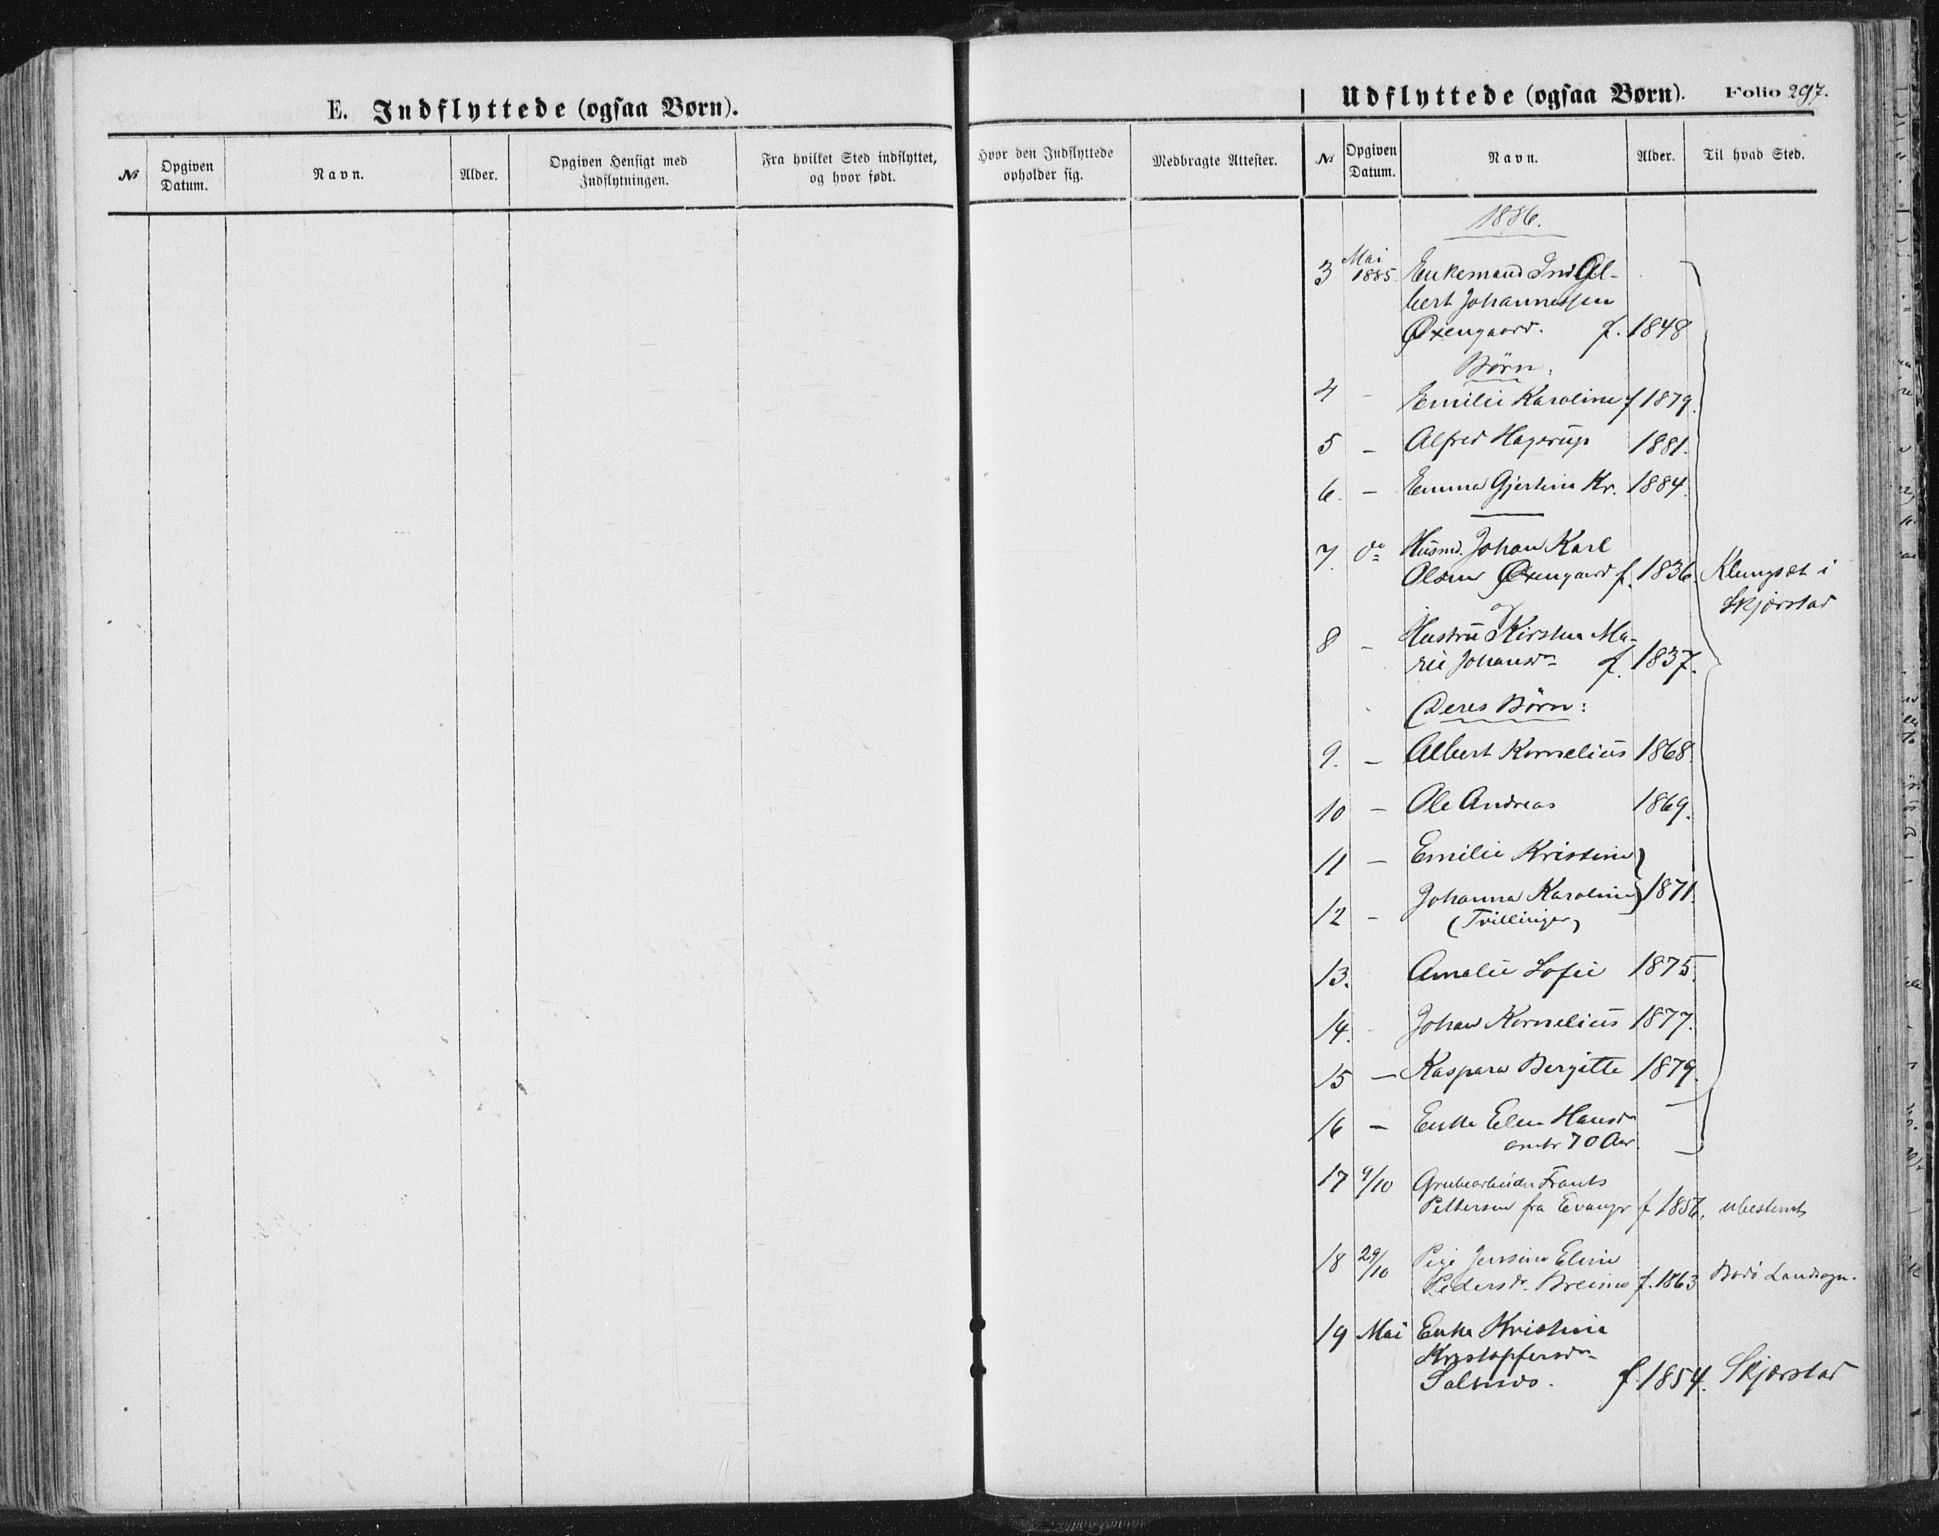 E. Indflyttede (ogsaa Børn).
Udflyttede (ogsaa Børn). Folio 297.
№ Opgiven Datum. Navn. Alder. Opgiven Hensigt med Indflytningen. Fra hvilket Sted indflyttet, og hvor født. Hvor den Indflyttede opholder sig. Medbragte Attester.
№ Opgiven Datum. Navn. Alder. Til hvad Sted.
1886.
3 Mai 1885 Enkemand
bert Johannessen
Øxengaard. f. 1848
Børn:
4 - Emilie Karoline f 1879.
5 - Alfred Hagerup 1881.
6. - Emma Gjertine Kr. 1884.
7. do Husmd. Johan Karl
Olsen Øxengaard f. 1836. Klungset i
og Skjerstad
8 - Hustru Kirsten Ma-
rie Johansdr f. 1837.
Deres Børn:
9. - Albert Kornelius 1868.
10 - Ole Andreas 1869.
11 - Emilie Kristine
12 - Johanna Karoline 1871.
(Tvillinger)
13. Amalie Sofie 1875.
14. Johan Kornelius 1877.
15 - Kaspara Bergitte 1879.
16 - Enke Elen Hansdr
omtr 70 Aar.
17 9/10 Grubearbeider Frants
Pettersen fra f 1856. ubestemt
18 29/10 Pige Jensine Eline
Pedersdr. Breimo f. 1863 Bodø Landsogn.
19 Mai Enke Kristine
Kristoffersdr
f. 1854. Skjerstad